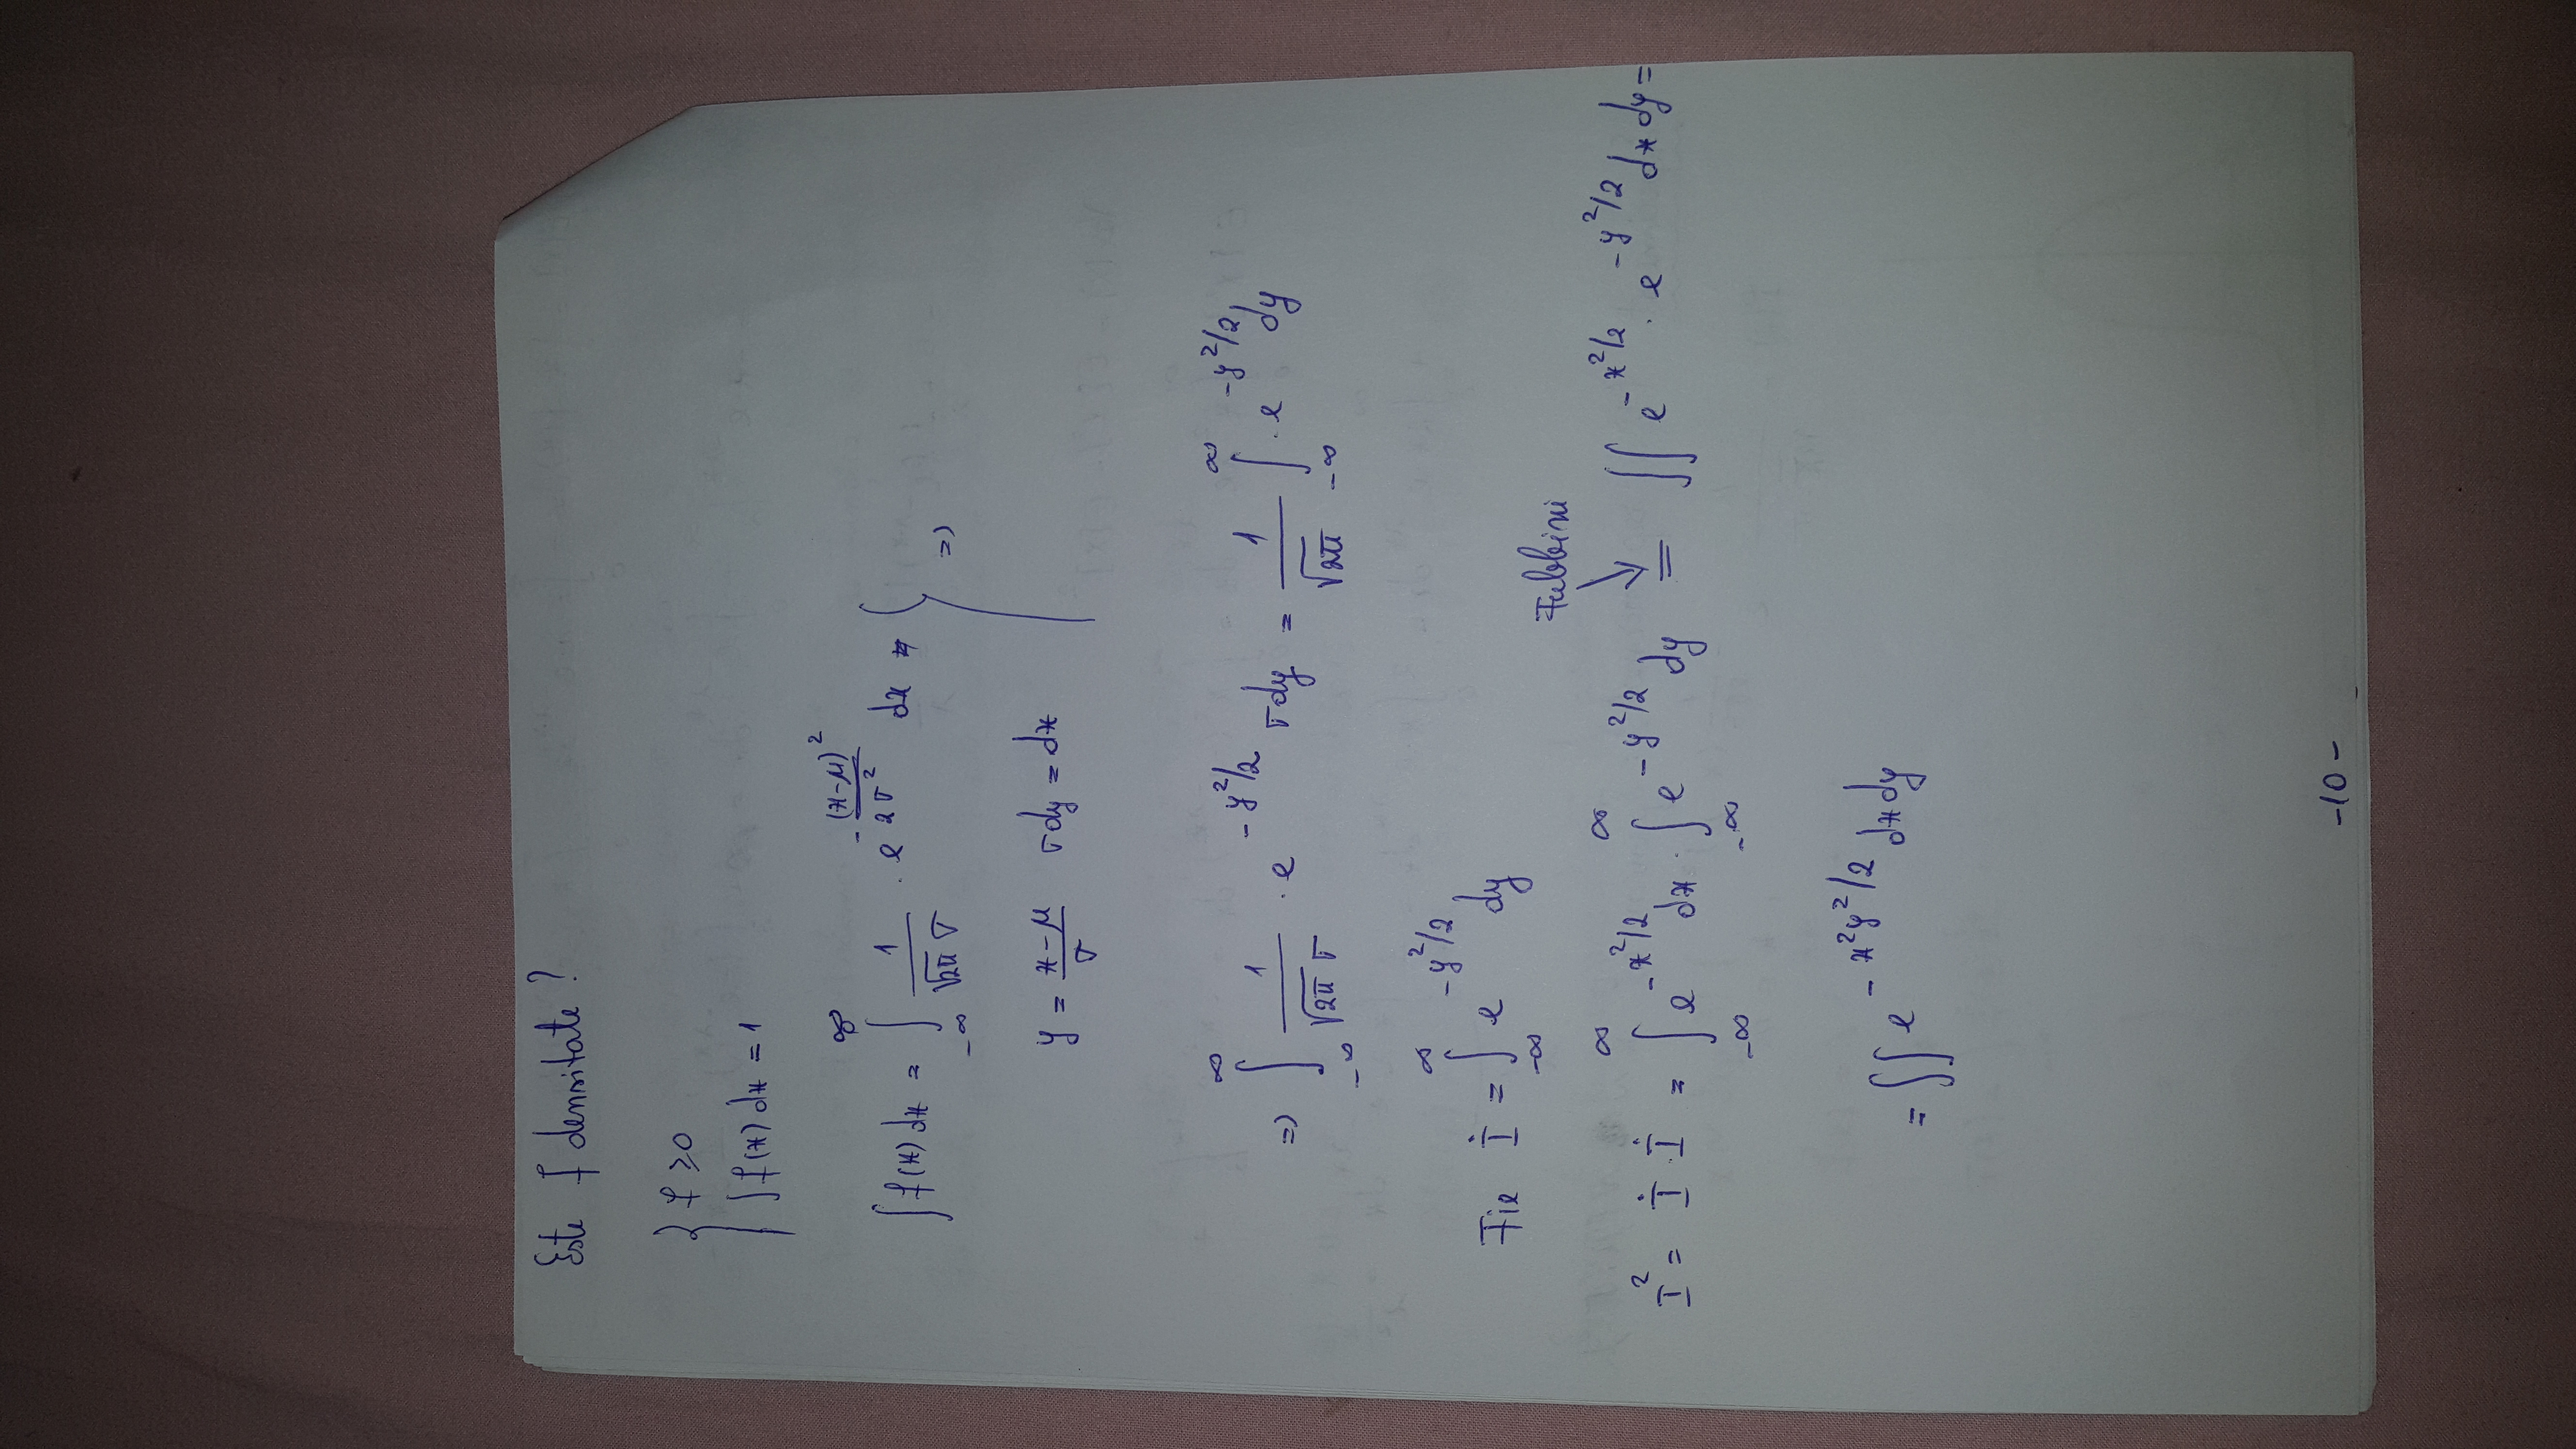 Este f densitate?
{ f ≥ 0
∫ f(x) dx = 1
∫ f(x) dx = ∫_{-∞}^{∞} 1/(√2π σ) · e^{-(x-μ)²/2σ²} dx
=>
y = (x-μ)/σ σdy = dx
=> ∫_{-∞}^{∞} 1/(√2π σ) · e^{-y²/2} σdy = 1/√2π ∫_{-∞}^{∞} · e^{-y²/2} dy
Fie I = ∫_{-∞}^{∞} e^{-y²/2} dy
Fubbini
I² = I · I = ∫_{-∞}^{∞} e^{-x²/2} dx · ∫_{-∞}^{∞} e^{-y²/2} dy = ∬ e^{-x²/2} · e^{-y²/2} dx dy =
= ∬ e^{-x²y²/2} dx dy
-10-